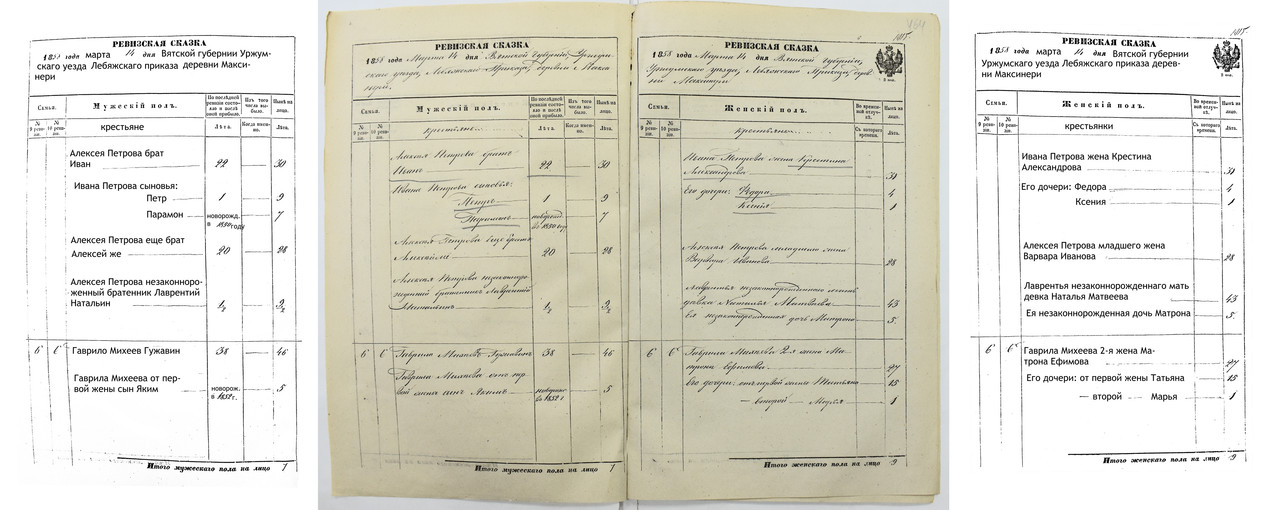 РЕВИЗСКАЯ СКАЗКА
1858 года марта 14 дня Вятской губернии Уржум-
скаго уезда Лебяжского приказа деревни Макси-
нери
Семьи.
Мужескій полъ.
По последней ревизіи состояло и после оной прибыло.
Изъ того числа выбыло.
Ныне на лицо.
№ 9 ревизіи.
№ 10 ревизіи.
крестьяне
Лета.
Когда именно.
Лета.
Алексея Петрова брат
Иван 22 30
Ивана Петрова сыновья:
Петр 1 9
Парамон новорожд. в 1850 году 7
Алексея Петрова еще брат
Алексей же 20 28
Алексея Петрова незаконноро-
женный братенник Лаврентий
Натальин
6 6 Гаврило Михеев Гужавин 38 46
Гаврила Михеева от пер-
вой жены сын Яким новорож. в 1852 г. 5
Итого мужескаго пола на лицо 7
РЕВИЗСКАЯ СКАЗКА
1858 года Марта 14 дня Вятской Губерніи, Уржум-
скаго уезда, Лебяжскаго Приказа, деревни Макси-
нери.
Семьи.
Мужескій полъ.
По последней ревизіи состояло и после оной прибыло.
Изъ того числа выбыло.
Ныне на лицо.
№ 9 ревизіи.
№ 10 ревизіи.
крестьяне
Лета.
Когда именно.
Лета.
Алексея Петрова братъ
Иванъ 22 30
Ивана Петрова сыновья:
Петръ 1 9
Парамонъ 7
Алексея Петрова еще братъ
Алексей же 20 28
Алексея Петрова незаконноро-
жденный братенникъ Лаврентій
Натальинъ
6 6 Гаврила Михеевъ Гужавинъ 38 46
Гаврила Михеева отъ пер-
вой жены сынъ Якимъ 5
Итого мужескаго пола на лицо 7
РЕВИЗСКАЯ СКАЗКА
1858 года Марта 14 дня Вятской губерніи,
Уржумскаго уезда, Лебяжскаго Приказа, дерев-
ни Максинери
Семьи.
Женскій полъ.
Во временной отлучке.
Ныне на лицо.
№ 9 ревизіи.
№ 10 ревизіи.
крестьянки
Съ котораго времени.
Лета.
Ивана Петрова жена Крестина
Александрова 31
Его дочери: Федора 4
Ксенія 1
Алексея Петрова младшаго жена
Варвара Иванова 28
Лаврентья незаконнорожденнаго мать
девка Наталья Матвеева 43
Ея незаконнорожденная дочь Матрона 5
6 6 Гаврила Михеева 2-я жена Ма-
трона Ефимова 27
Его дочери: отъ первой жены Татьяна 15
— второй — Марья 1
Итого женскаго пола на лицо 9
РЕВИЗСКАЯ СКАЗКА
1858 года марта 14 дня Вятской губернии
Уржумского уезда Лебяжского приказа дерев-
ни Максинери
Семьи.
Женскій полъ.
Во временной отлучке.
Ныне на лицо.
№ 9 ревизіи.
№ 10 ревизіи.
крестьянки
Съ котораго времени.
Лета.
Ивана Петрова жена Крестина
Александрова 31
Его дочери: Федора 4
Ксения 1
Алексея Петрова младшего жена
Варвара Иванова 28
Лаврентья незаконнорожденнаго мать
девка Наталья Матвеева 43
Ея незаконнорожденная дочь Матрона 5
6 6 Гаврила Михеева 2-я жена Ма-
трона Ефимова 27
Его дочери: от первой жены Татьяна 15
— второй — Марья 1
Итого женскаго пола на лицо 9